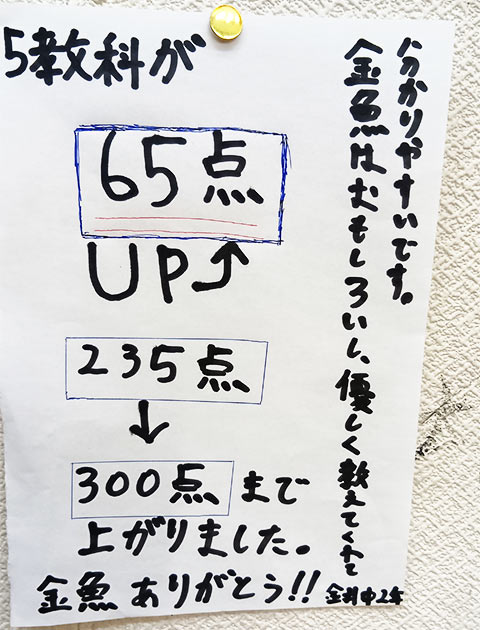 5教科が
65点
UP
235点
↓
300点まで
上がりました。
金魚はおもしろいし、優しく教えてくれて
分かりやすいです。
金魚 ありがとう!!
金井中2年